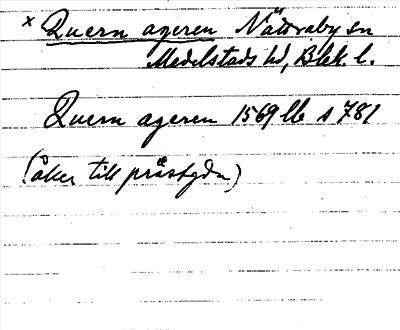 x Quern ageren Nättraby sn
Medelstads hd, Blek. l.
Quern ageren 1569 lb s 781
(åker till prästgdn)